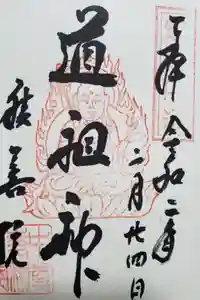 奉拝 令和二年
二月廿四日
道祖神
積善院